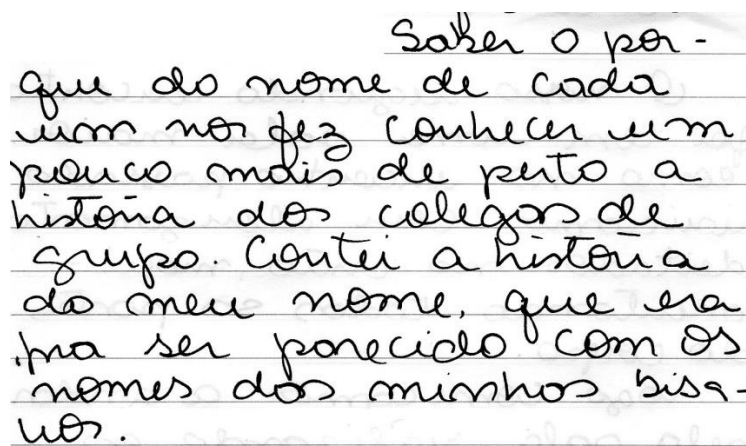 Saber o por-
que do nome de cada
um nos fez conhecer um
pouco mais de perto a
história dos colegas de
grupo. Contei a história
do meu nome, que era
pra ser parecido com os
nomes das minhas bisa-
vós.